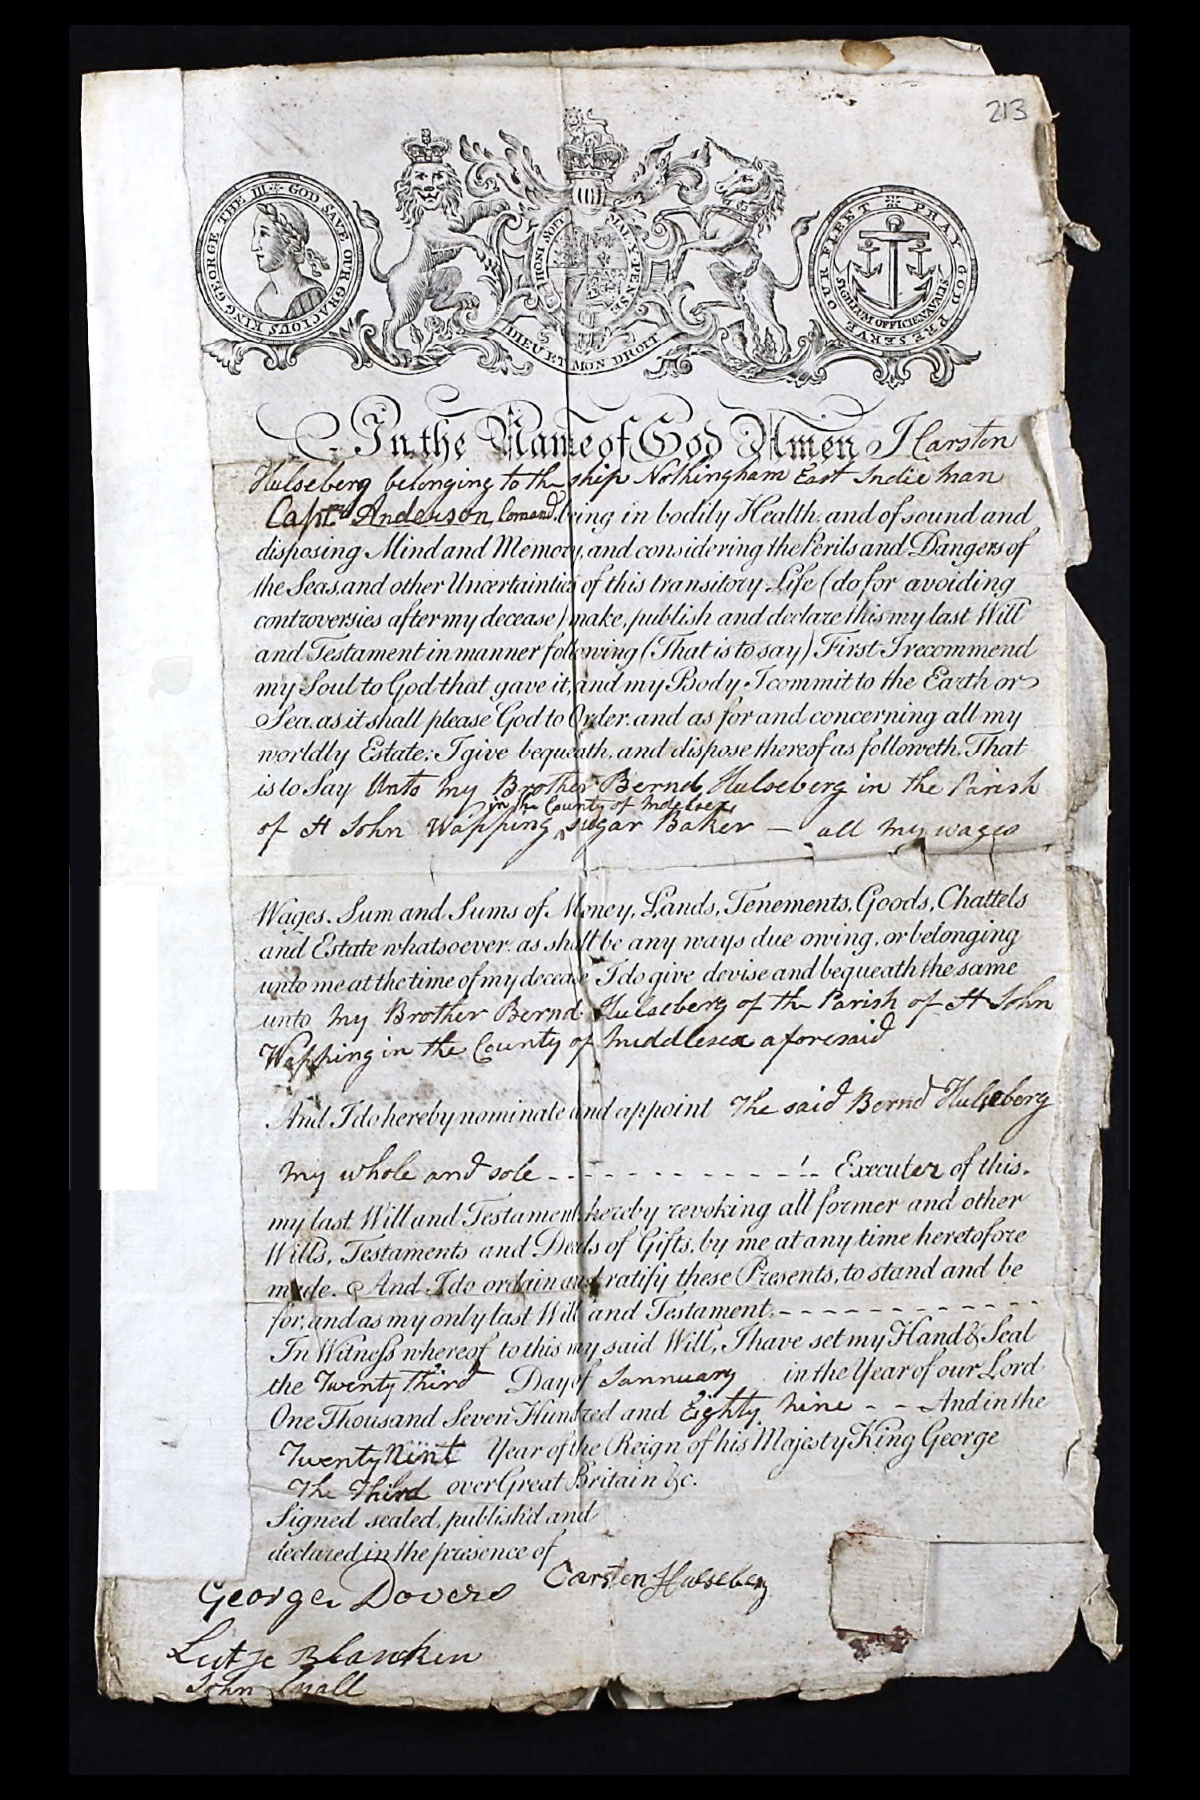 213
GEORGE THE III · GOD SAVE OUR GRACIOUS KING
HONI SOIT QUI MAL Y PENSE
DIEU ET MON DROIT
OUR FLEET PRAY GOD PRESERVE
SIGILLUM OFFICII NAVAGS
In the Name of God Amen I Carsten
Hulseberg belonging to the ship Nothingham East Indie man
Captn Anderson Comandr being in bodily Health, and of sound and
disposing Mind and Memory, and considering the Perils and Dangers of
the Seas, and other Uncertainties of this transitory Life (do for avoiding
controversies after my decease) make, publish and declare this my last Will
and Testament in manner following (That is to say) First I recommend
my Soul to God that gave it, and my Body I commit to the Earth or
Sea, as it shall please God to Order, and as for and concerning all my
worldly Estate; I give bequeath, and dispose thereof as followeth. That
is to Say Unto my Brother Bernd Hulseberg in the Parish
in the County of Mdelsex
of St John Wapping sugar Baker — all my wages
Wages, Sum and Sums of Money, Lands, Tenements, Goods, Chattels
and Estate whatsoever, as shall be any ways due owing, or belonging
unto me at the time of my decease I do give devise and bequeath the same
unto my Brother Bernd Hulseberg of the Parish of St John
Wapping in the County of middlesex aforesaid
And I do hereby nominate and appoint the said Bernd Hulseberg
my whole and sole - - - - - - - - - Executer of this.
my last Will and Testament, hereby revoking all former and other
Wills, Testaments and Deeds of Gifts, by me at any time heretofore
made. And I do ordain and ratify these Presents, to stand and be
for, and as my only last Will and Testament. - - - - - - - - - - -
In Witness whereof to this my said Will, I have set my Hand & Seal
the Twenty Third Day of Jannuary in the Year of our Lord
One Thousand Seven Hundred and Eighty nine - - And in the
Twenty Nint Year of the Reign of his Majesty King George
The Third over Great Britain &c.
Signed sealed, publish'd and
declared in the presence of
Carsten Hulseberg
George Dovers
Lutje Blancken
John